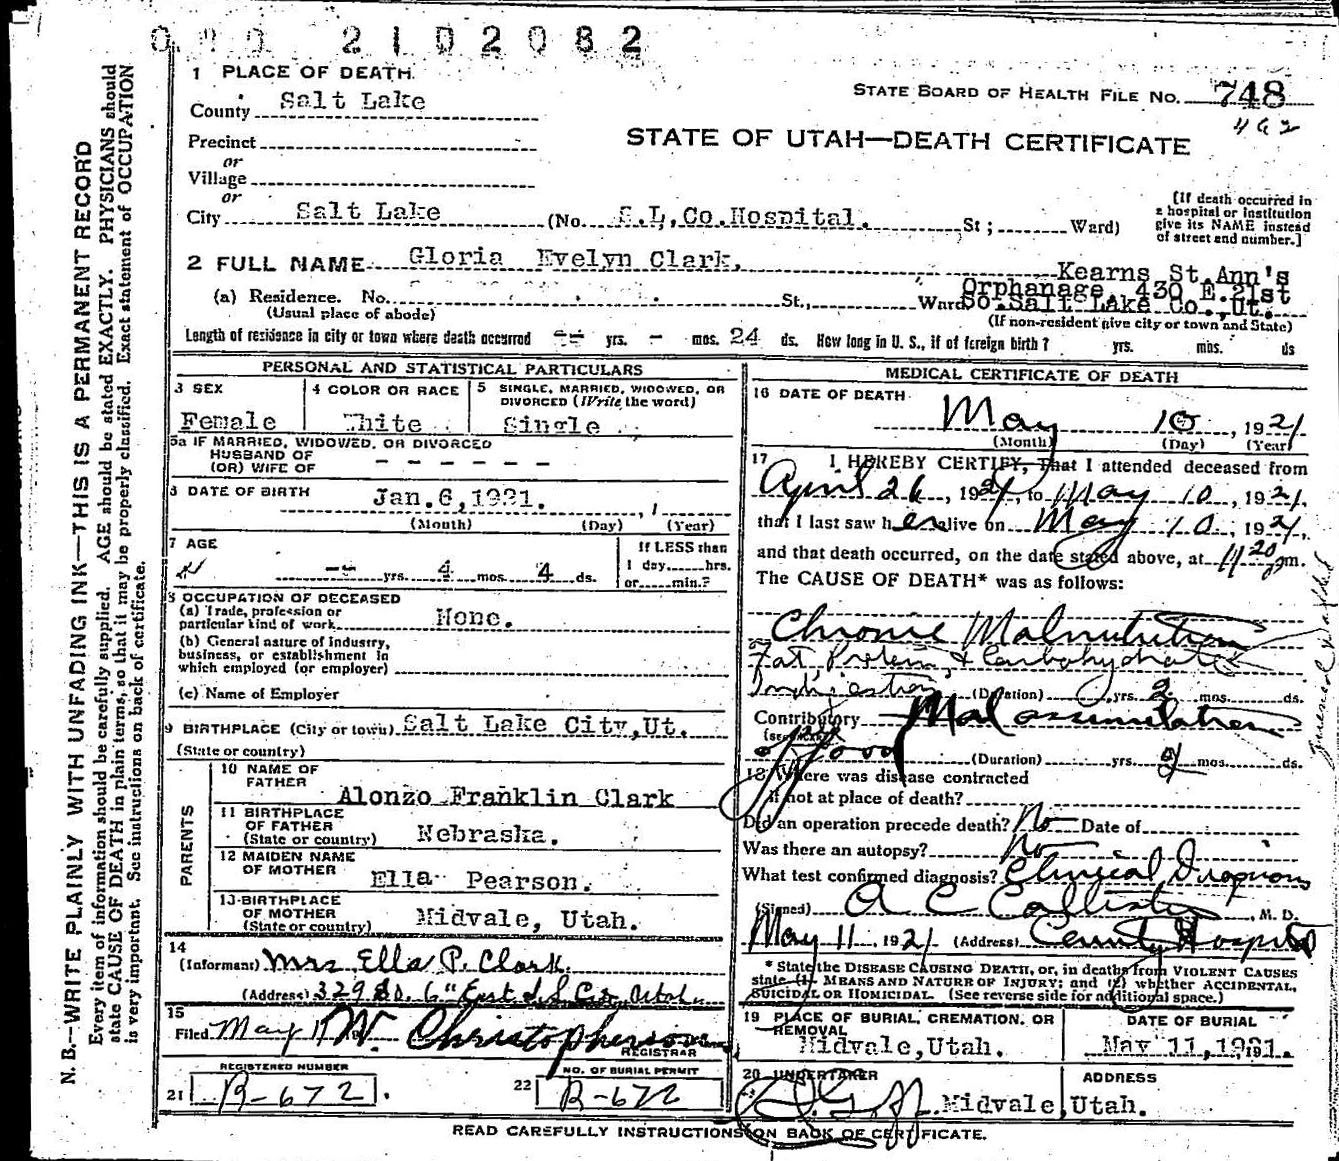 2102082
1 PLACE OF DEATH
STATE BOARD OF HEALTH FILE NO. 748
County Salt Lake
462
Precinct
STATE OF UTAH—DEATH CERTIFICATE
or
Village
or
City Salt Lake (No. S.L.Co.Hospital. St ; Ward)
[If death occurred in
a hospital or institution
give its NAME instead
of street and number.]
2 FULL NAME Gloria Evelyn Clark.
Kearns St.Ann's
(a) Residence. No. St., Ward. Orphanage, 430 E.21st
So.Salt Lake Co.,Ut.
(Usual place of abode) (If non-resident give city or town and State)
Length of residence in city or town where death occurred -- yrs. - mos. 24 ds. How long in U. S., if of foreign birth? yrs. mos. ds
PERSONAL AND STATISTICAL PARTICULARS
3 SEX
Female
4 COLOR OR RACE
White
5 SINGLE, MARRIED, WIDOWED, OR
DIVORCED (Write the word)
Single
5a IF MARRIED, WIDOWED, OR DIVORCED
HUSBAND OF
(OR) WIFE OF - - - - - -
6 DATE OF BIRTH Jan.6,1921.
(Month) (Day) (Year)
7 AGE
-- yrs. 4 mos. 4 ds.
If LESS than
1 day, hrs.
or min.?
8 OCCUPATION OF DECEASED
(a) Trade, profession or
particular kind of work None.
(b) General nature of industry,
business, or establishment in
which employed (or employer)
(c) Name of Employer
9 BIRTHPLACE (City or town) Salt Lake City,Ut.
(State or country)
PARENTS
10 NAME OF
FATHER
Alonzo Franklin Clark
11 BIRTHPLACE
OF FATHER
(State or country) Nebraska.
12 MAIDEN NAME
OF MOTHER
Ella Pearson.
13 BIRTHPLACE
OF MOTHER
(State or country) Midvale, Utah.
14
(Informant) Mrs Ella P. Clark.
(Address) 329 So. 6" East S.L. City Utah.
15
Filed May 11 W. Christopherson
REGISTRAR
REGISTERED NUMBER
21 B-672
NO. OF BURIAL PERMIT
22 B-672
MEDICAL CERTIFICATE OF DEATH
16 DATE OF DEATH
May 10, 1921
(Month) (Day) (Year)
17 I HEREBY CERTIFY, That I attended deceased from
April 26, 1921, to May 10, 1921,
that I last saw her alive on May 10, 1921,
and that death occurred, on the date stated above, at 11 20 pm.
The CAUSE OF DEATH* was as follows:
Chronic Malnutrition
Fat Protein & Carbohydrate
Indigestion (Duration) yrs. 2 mos. ds.
Contributory Mal assimilation
of food (Duration) yrs. 2 mos. ds.
18 Where was disease contracted
if not at place of death?
Did an operation precede death? No Date of
Was there an autopsy? No
What test confirmed diagnosis? Clinical Diagnosis
(Signed) A C Callister, M. D.
May 11, 1921 (Address) County Hospital
* State the DISEASE CAUSING DEATH, or, in deaths from VIOLENT CAUSES
state (1) MEANS AND NATURE OF INJURY; and (2) whether ACCIDENTAL,
SUICIDAL OR HOMICIDAL. (See reverse side for additional space.)
19 PLACE OF BURIAL, CREMATION, OR
REMOVAL
Midvale,Utah.
DATE OF BURIAL
May 11,1921.
20 UNDERTAKER ADDRESS
Midvale,Utah.
READ CAREFULLY INSTRUCTIONS ON BACK OF CERTIFICATE.
N. B.—WRITE PLAINLY WITH UNFADING INK—THIS IS A PERMANENT RECORD
Every item of information should be carefully supplied. AGE should be stated EXACTLY. PHYSICIANS should
state CAUSE OF DEATH in plain terms, so that it may be properly classified. Exact statement of OCCUPATION
is very important. See instructions on back of certificate.